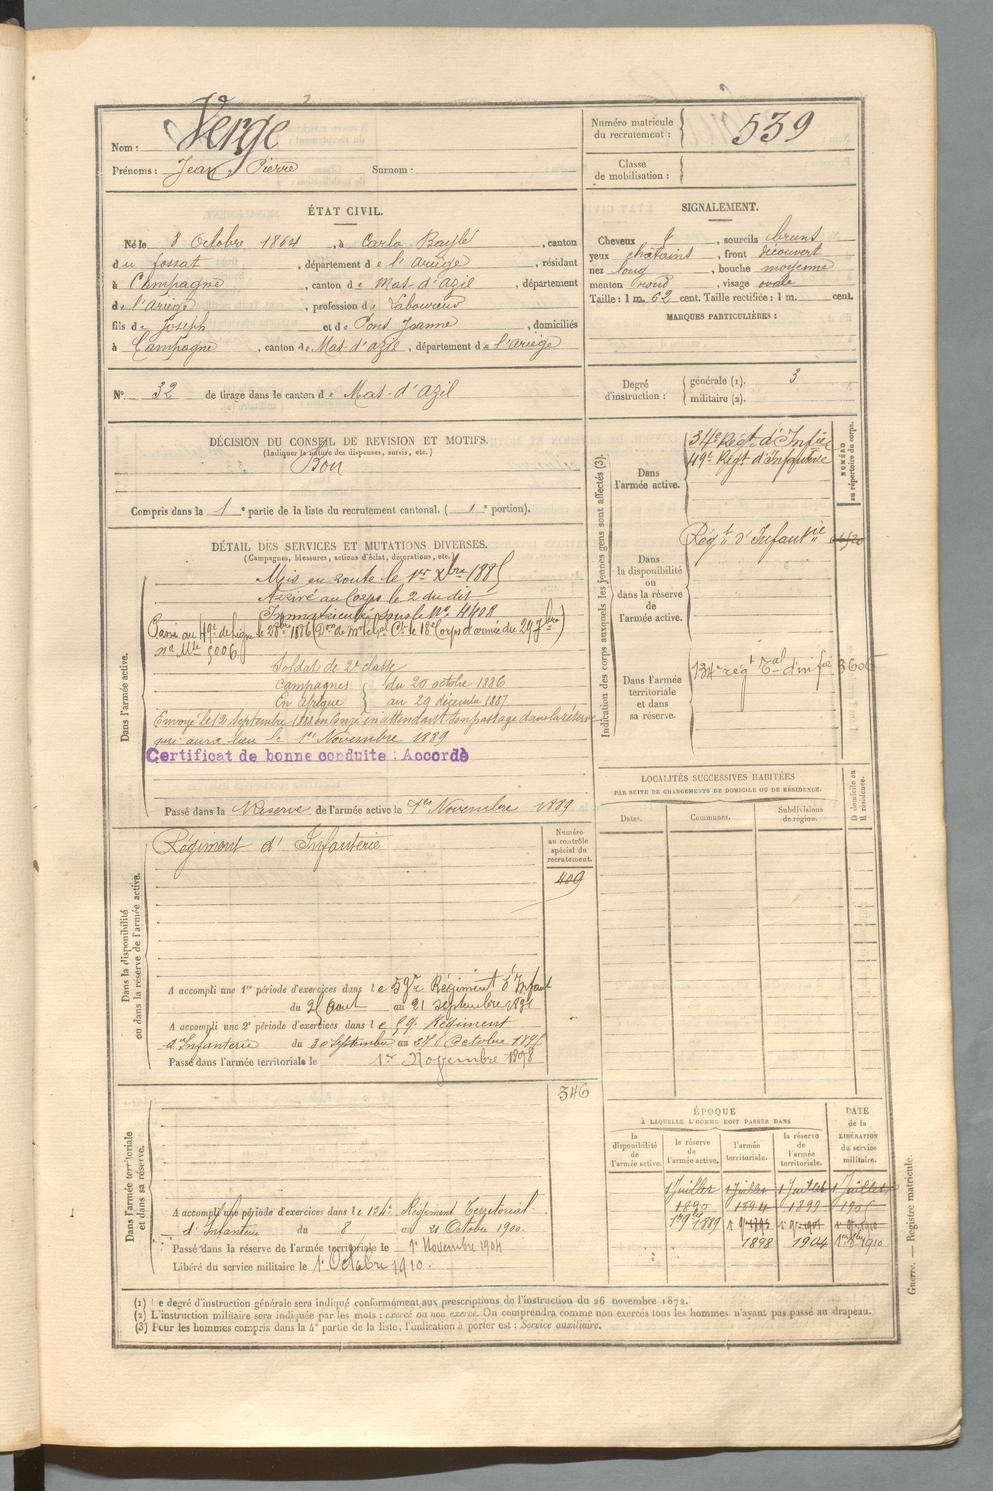 Nom : Verge
Prénoms : Jean, Pierre Surnom :
Numéro matricule du recrutement : 539
Classe de mobilisation :
ÉTAT CIVIL.
Né le 8 Octobre 1864, à Carla Bayle, canton
du fossat, département de l'ariège, résidant
à Campagne, canton de Mas-d'azil, département
de l'ariège, profession de Laboureur
fils de Joseph et de Pons Jeanne, domiciliés
à Campagne, canton de Mas-d'azil, département de l'ariège
N° 32 de tirage dans le canton de Mas-d'azil
SIGNALEMENT.
Cheveux , sourcils bruns
yeux chatains, front découvert
nez long, bouche moyenne
menton rond, visage ovale
Taille : 1 m. 62 cent. Taille rectifiée : 1 m. cent.
MARQUES PARTICULIÈRES :
Degré d'instruction : générale (1). 3
militaire (2).
DÉCISION DU CONSEIL DE REVISION ET MOTIFS.
(Indiquer la nature des dispenses, sursis, etc.)
Bon
Compris dans la 1e partie de la liste du recrutement cantonal. (1e portion).
DÉTAIL DES SERVICES ET MUTATIONS DIVERSES.
(Campagnes, blessures, actions d'éclat, décorations, etc.)
Dans l'armée active.
Mis en route le 1er Xbre 1885
Arrivé au Corps le 2 du dit
Immatriculé sous le N° 4408
Passé au 49e de Ligne le 28 1886 (Don de Mr le Gal Ct le 18e Corps d'armée du 29 7bre)
n° Mle 5006
Soldat de 2e classe
Campagnes du 20 octobre 1886
En afrique au 29 décembre 1887
Envoyé le 12 septembre 1888 en congé en attendant son passage dans la réserve
qui aura lieu le 1er Novembre 1889
Certificat de bonne conduite : Accordé
Passé dans la Réserve de l'armée active le 1er Novembre 1889
Indication des corps auxquels les jeunes gens sont affectés (3).
NUMÉRO au répertoire du corps.
Dans l'armée active.
34e Régt d'Infie
49e Régt d'Infanterie
Dans la disponibilité ou dans la réserve de l'armée active.
Régt d'Infantie
Dans l'armée territoriale et dans sa réserve.
134e régt Tal d'infie 3605
LOCALITÉS SUCCESSIVES HABITÉES
PAR SUITE DE CHANGEMENTS DE DOMICILE OU DE RÉSIDENCE.
Dates. Communes. Subdivisions de région. D domicile ou R résidence.
Dans la disponibilité ou dans la réserve de l'armée active.
Régiment d'Infanterie
Numéro au contrôle spécial du recrutement.
409
A accompli une 1re période d'exercices dans le 59e Régiment d'Infant
du 25 Aout au 21 septembre 1891
A accompli une 2e période d'exercices dans le 59e Régiment
d'Infanterie du 30 Septembre au 27 Octobre 1895
Passé dans l'armée territoriale le 1er Novembre 1898
346
Dans l'armée territoriale et dans sa réserve.
A accompli une période d'exercices dans le 134e Régiment Territorial
d'Infanterie du 8 au 21 Octobre 1900.
Passé dans la réserve de l'armée territoriale le 1er Novembre 1904
Libéré du service militaire le 1er Octobre 1910.
ÉPOQUE
À LAQUELLE L'HOMME DOIT PASSER DANS
la disponibilité de l'armée active. la réserve de l'armée active. l'armée territoriale. la réserve de l'armée territoriale.
DATE de la LIBÉRATION du service militaire.
1 Juillet 1 Juillet 1 Juillet 1 Juillet
1890 1894 1899 1905
1898 1904 1910
(1) Le degré d'instruction générale sera indiqué conformément aux prescriptions de l'instruction du 26 novembre 1872.
(2) L'instruction militaire sera indiquée par les mots : exercé ou non exercé. On comprendra comme non exercés tous les hommes n'ayant pas passé au drapeau.
(3) Pour les hommes compris dans la 4e partie de la liste, l'indication à porter est : Service auxiliaire.
Guerre. — Registre matricule.